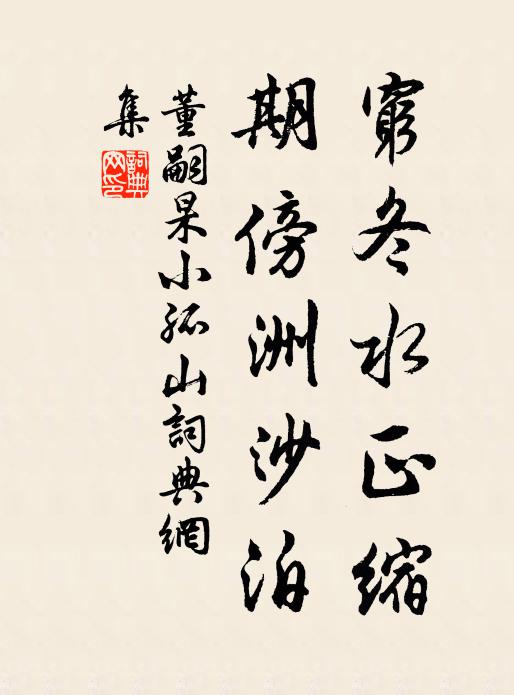 窮冬水正縮
期傍洲沙泊
董嗣杲小孤山詞典網
集
詞典
网印